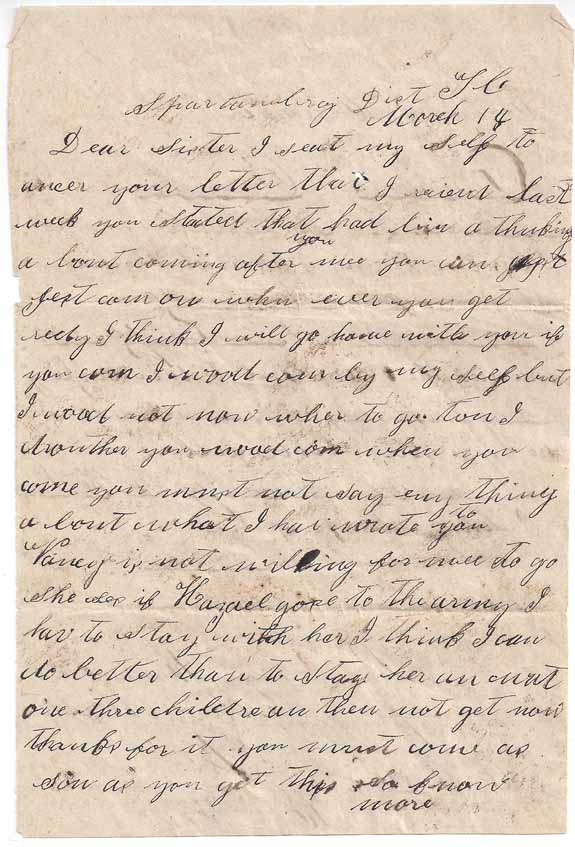 Spartanburg Dist S C
March 14
Dear Sister I seat my self to
ancer your letter that I reient last
week you stated that had bin a thinking
a bout coming after you mee you can
jest com on when ever you get
redy I think I will go home with you if
you com I wood com by my self but
I wood not now wher to go ton I
drouther you wood com when you
come you must not say eny thing
a bout what I hav wrote to you
Nancy is not willing for mee to go
she ses if Hazael gose to the army I
hav to stay with her I think I can
do better than to stay her an wat
one three childrean then not get now
thanks for it you must come as
son as you get this So know
more